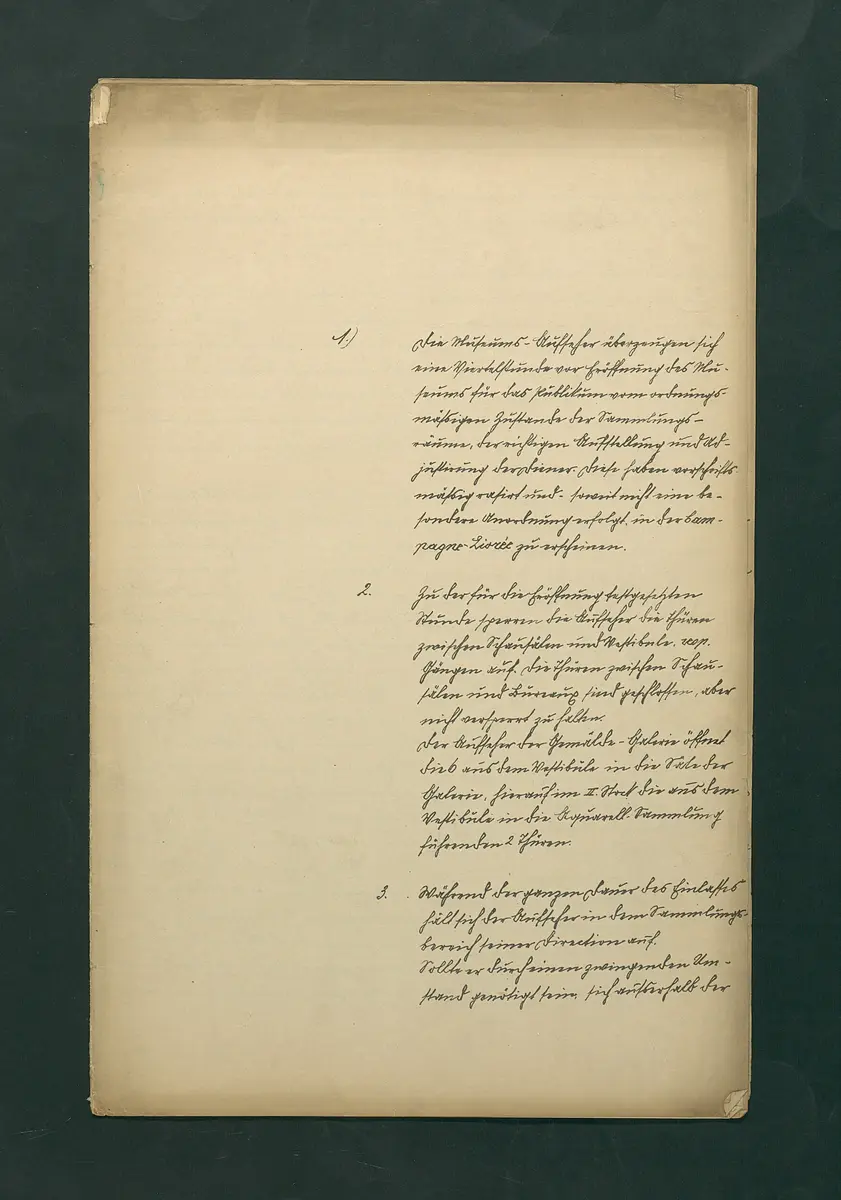 1.) Die Museums-Aufseher überzeugen sich
eine Viertelstunde vor Eröffnung des Mu-
seums für das Publikum vom ordnungs-
mässigen Zustande der Sammlungs-
räume, der richtigen Aufstellung und Ad-
justirung der Diener. Diese haben vorschrifts
mässig rasirt und - soweit nicht eine be-
sondere Anordnung erfolgt, in der Cam-
pagne-Livrée zu erscheinen.
2. Zu der für die Eröffnung festgesetzten
Stunde sperren die Aufseher die Thüren
zwischen Schausälen und Vestibule, resp.
Gängen auf. Die Thüren zwischen Schau-
sälen und Bureaux sind geschlossen, aber
nicht versperrt zu halten.
Der Aufseher der Gemälde-Galerie öffnet
die 6 aus dem Vestibule in die Säle der
Galerie, hierauf im II. Stock die aus dem
Vestibule in die Aquarell-Sammlung
führenden 2 Thüren.
3. Während der ganzen Dauer des Einlasses
hält sich der Aufseher in dem Sammlungs-
bereich seiner Direction auf.
Sollte er durch einen zwingenden Um-
stand genötigt sein, sich ausserhalb der